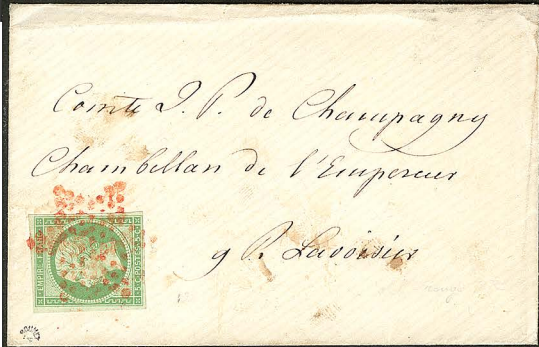 Comte J. P. de Champagny
Chambellan de l'Empereur
9 R. Lavoisier
EMPIRE FRANC
5 C. POSTES 5 C.